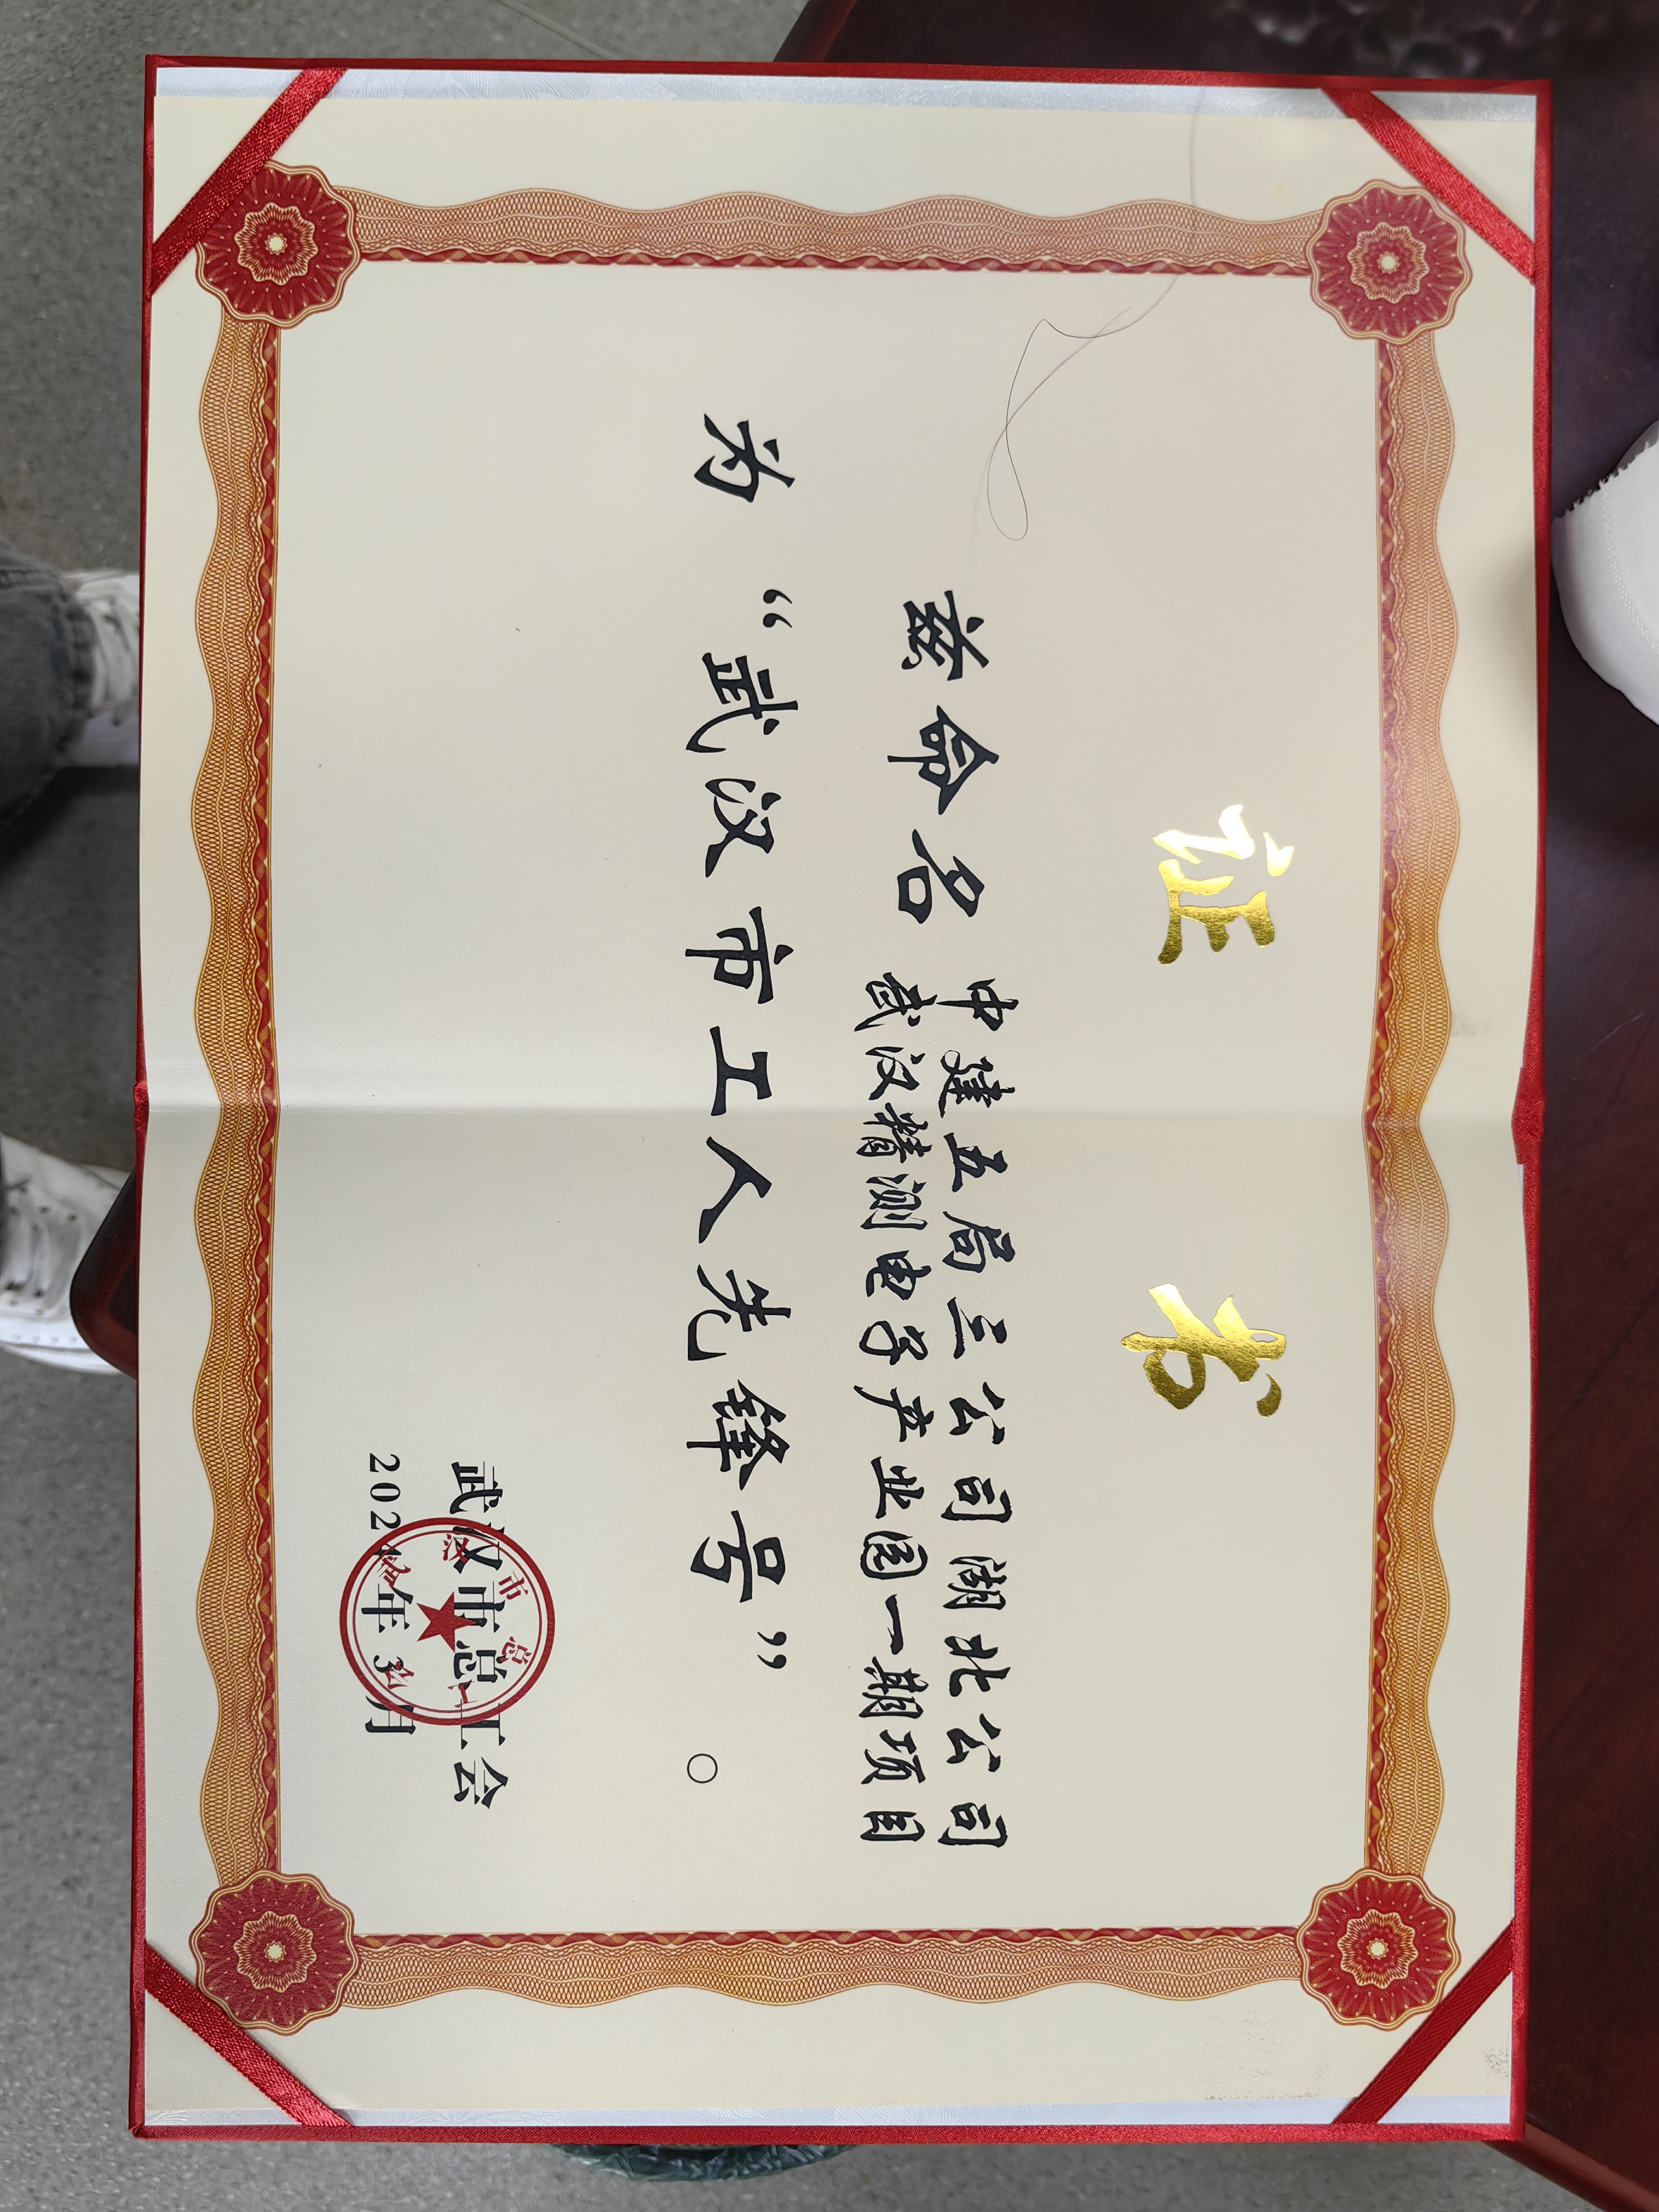 证 书
兹命名
中建五局三公司湖北公司
武汉精测电子产业园一期项目
为“武汉市工人先锋号”。
武汉市总工会
年3月